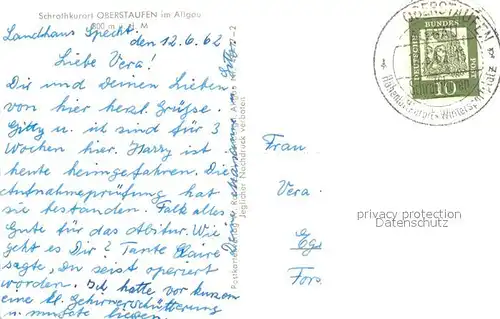 Schrothkurort OBERSTAUFEN im Allgäu
800 m ü. M
Landhaus Specht, den 12.6.62
Liebe Vera!
Dir und deinen Lieben
von hier herzl. Grüsse.
Gitty u. ich sind für 3
Wochen hier. Harry ist
heute heimgefahren. Die
Aufnahmeprüfung hat
sie bestanden. Falls alles
Gute für das Abitur. Wie
geht es Dir? Tante Claire
sagte, Du seist operiert
worden. Ich hatte vor kurzem
eine kl. Gehirnerschütterung
u. musste liegen.
Deine Marianne
Jeglicher Nachdruck verboten
OBERSTAUFEN
Höhenluftkurort · Wintersportplatz
DEUTSCHE BUNDESPOST
10
Frau
Vera
privacy protection
Datenschutz